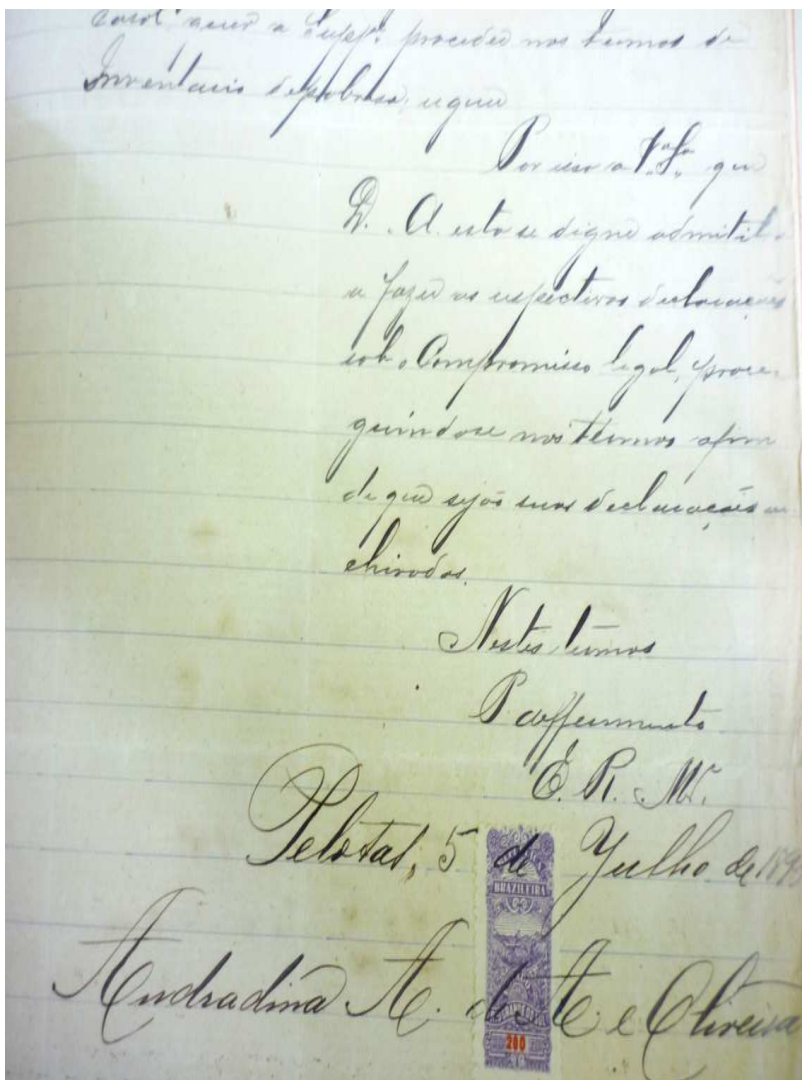 casal quer a Supp.e proceder nos termos de
Inventario de pobresa, e que
Por isso a V. S.a que
D. A. esta se digne admitil-a
a fazer as respectivas declarações
sob o Compromisso legal, prose-
guindo se nos termos afim
de que sejão suas declarações
chivadas.
Nestes termos
P. defferimento
E. R. M.
Pelotas, 5 de Julho de 189
BRAZILEIRA
200
Andradina A. de A. e Oliveira